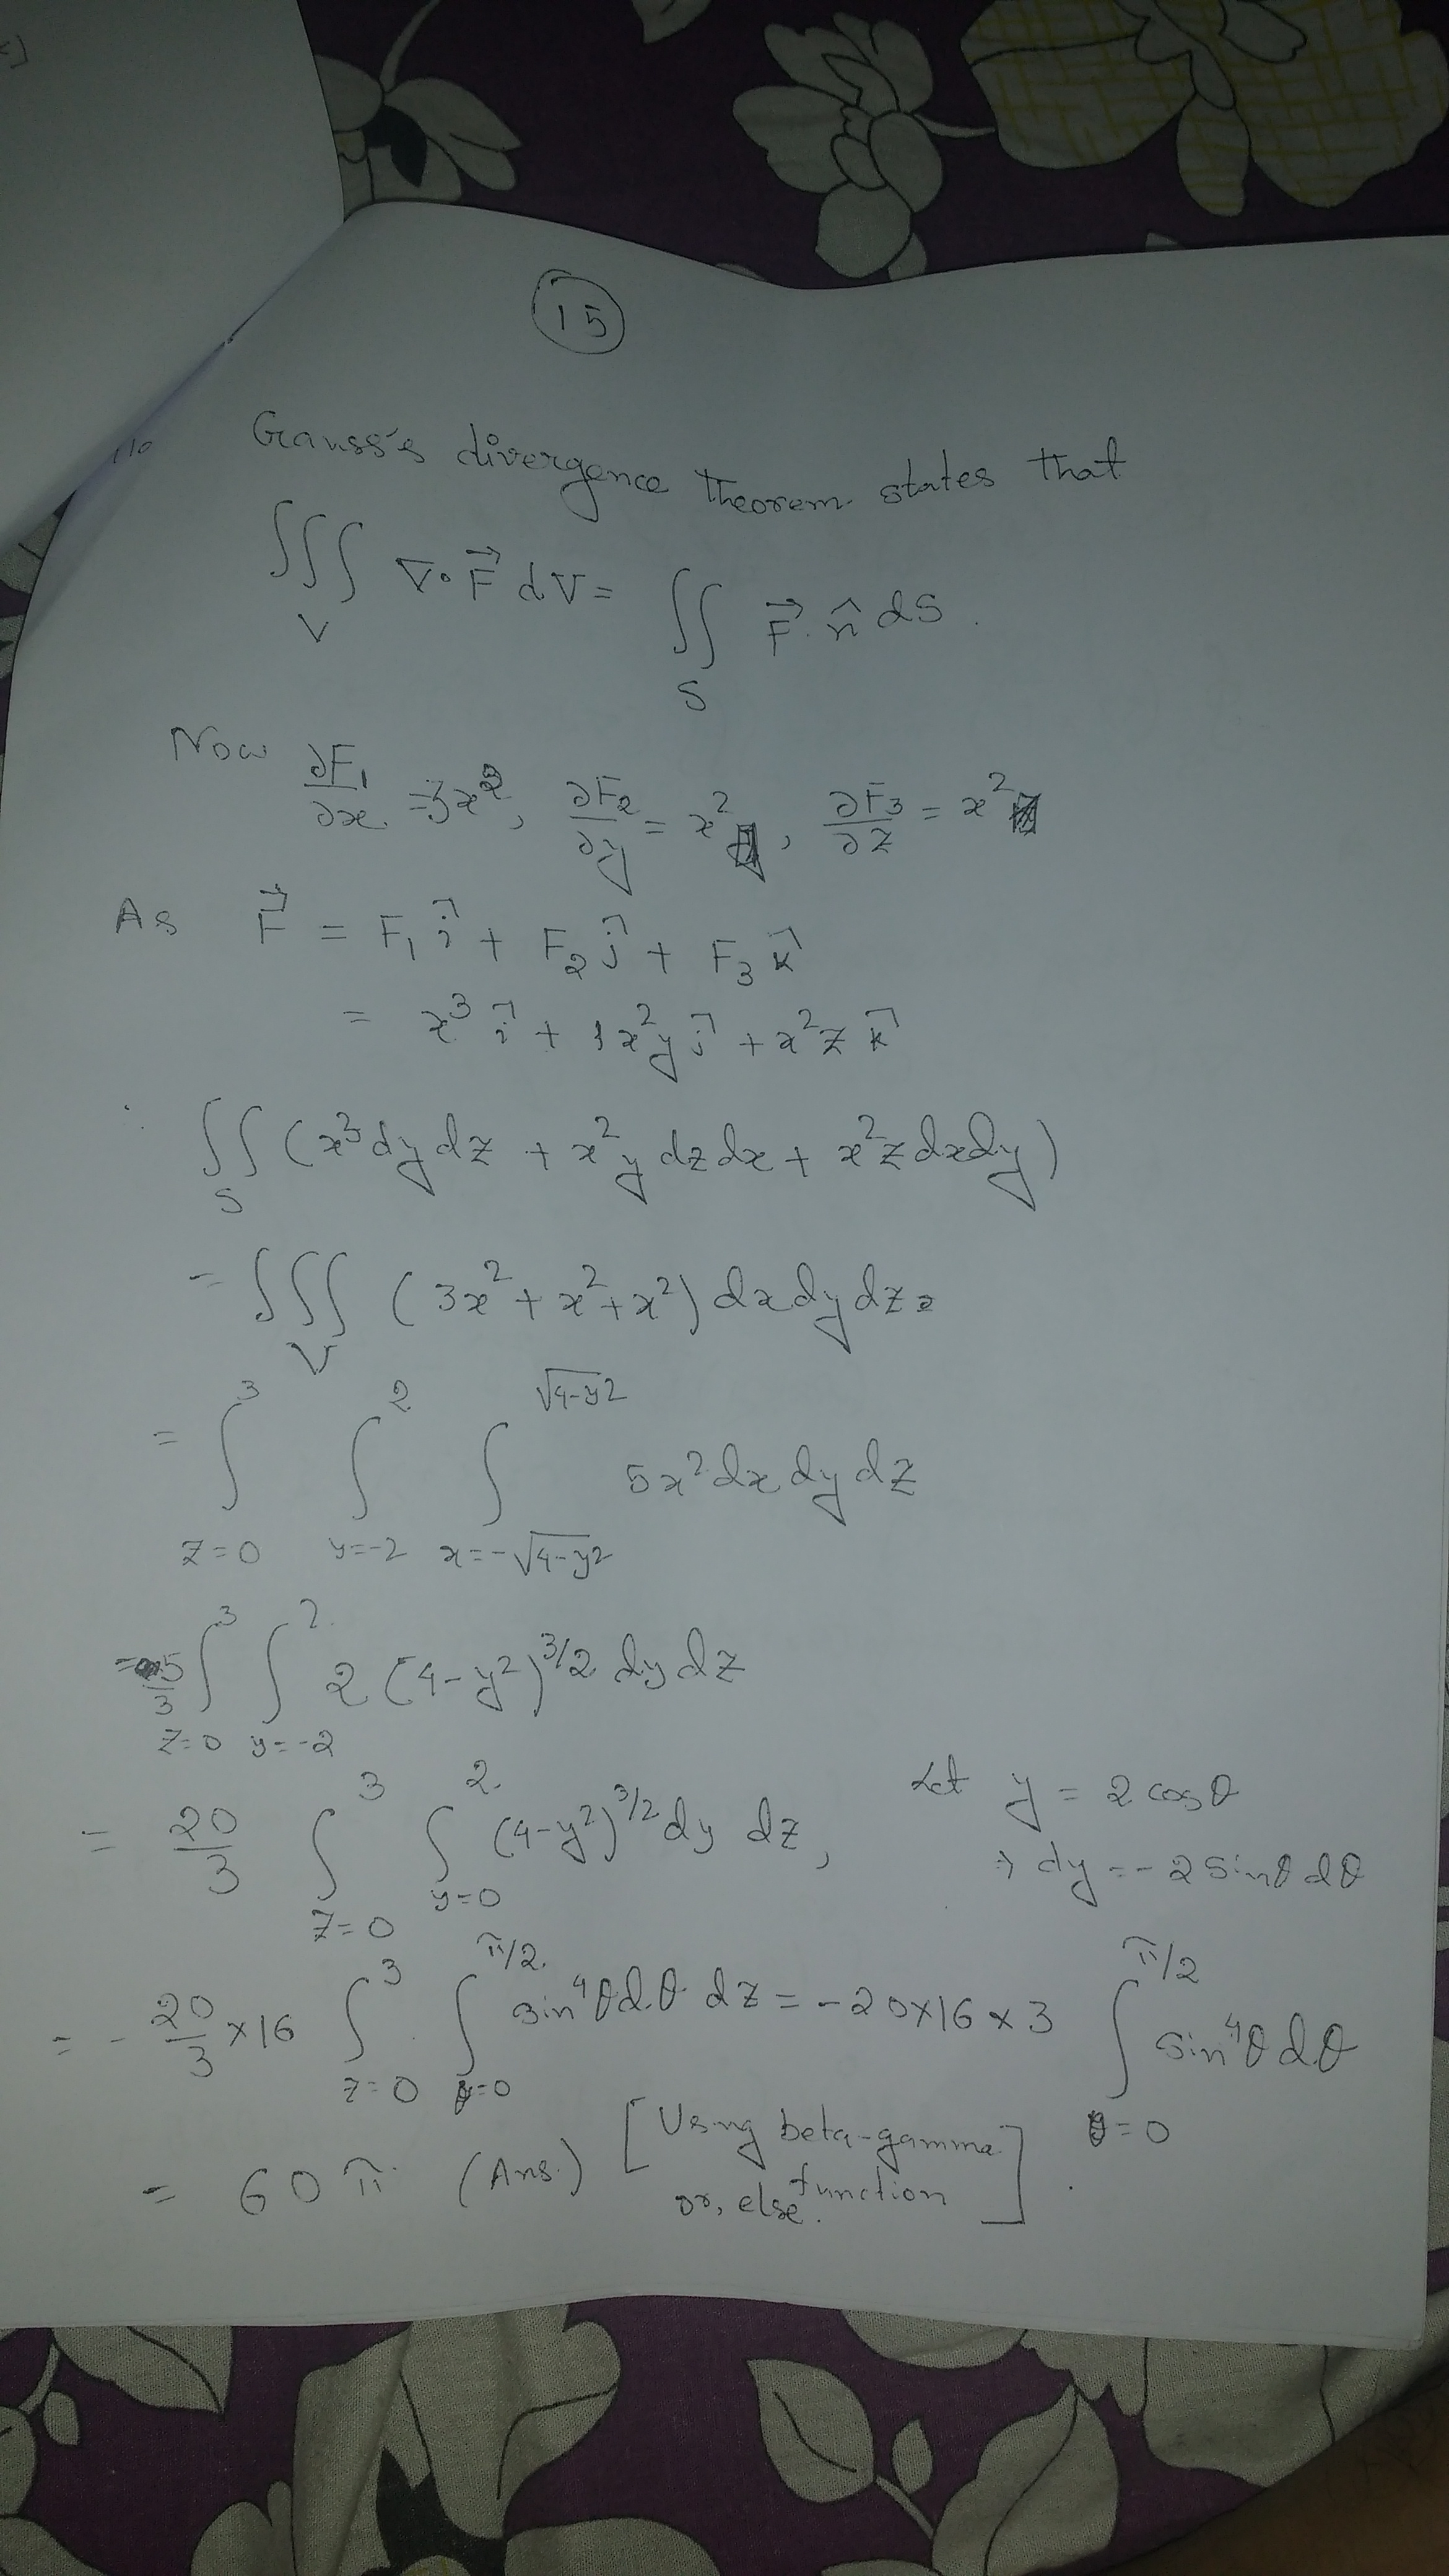 15
Gauss's divergence theorem states that
∭_V ∇·F⃗ dV = ∬_S F⃗·n̂ dS.
Now ∂F₁/∂x = 3x², ∂F₂/∂y = x², ∂F₃/∂z = x²
As F⃗ = F₁ î + F₂ ĵ + F₃ k̂
= x³ î + 1x²y ĵ + x²z k̂
∬_S (x³dydz + x²y dzdx + x²z dxdy)
= ∭_V (3x² + x² + x²) dxdydz =
= ∫_{z=0}^{3} ∫_{y=-2}^{2} ∫_{x=-√(4-y²)}^{√(4-y²)} 5x² dx dy dz
= 5/3 ∫_{z=0}^{3} ∫_{y=-2}^{2} 2(4-y²)^{3/2} dy dz
= 20/3 ∫_{z=0}^{3} ∫_{y=0}^{2} (4-y²)^{3/2} dy dz, Let y = 2cosθ
⇒ dy = -2sinθdθ
= -20/3 ×16 ∫_{z=0}^{3} ∫_{θ=0}^{π/2} sin⁴θdθ dz = -20×16×3 ∫_{θ=0}^{π/2} sin⁴θdθ
= 60π (Ans.) [Using beta-gamma function or, else.]